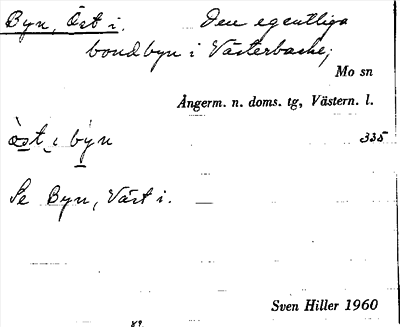 Byn, Öst i. Den egentliga
bondbyn i Västerbacke;
Mo sn
Ångerm. n. doms. tg, Västern. l.
öst i byn 335
Se Byn, Väst i.
Sven Hiller 1960